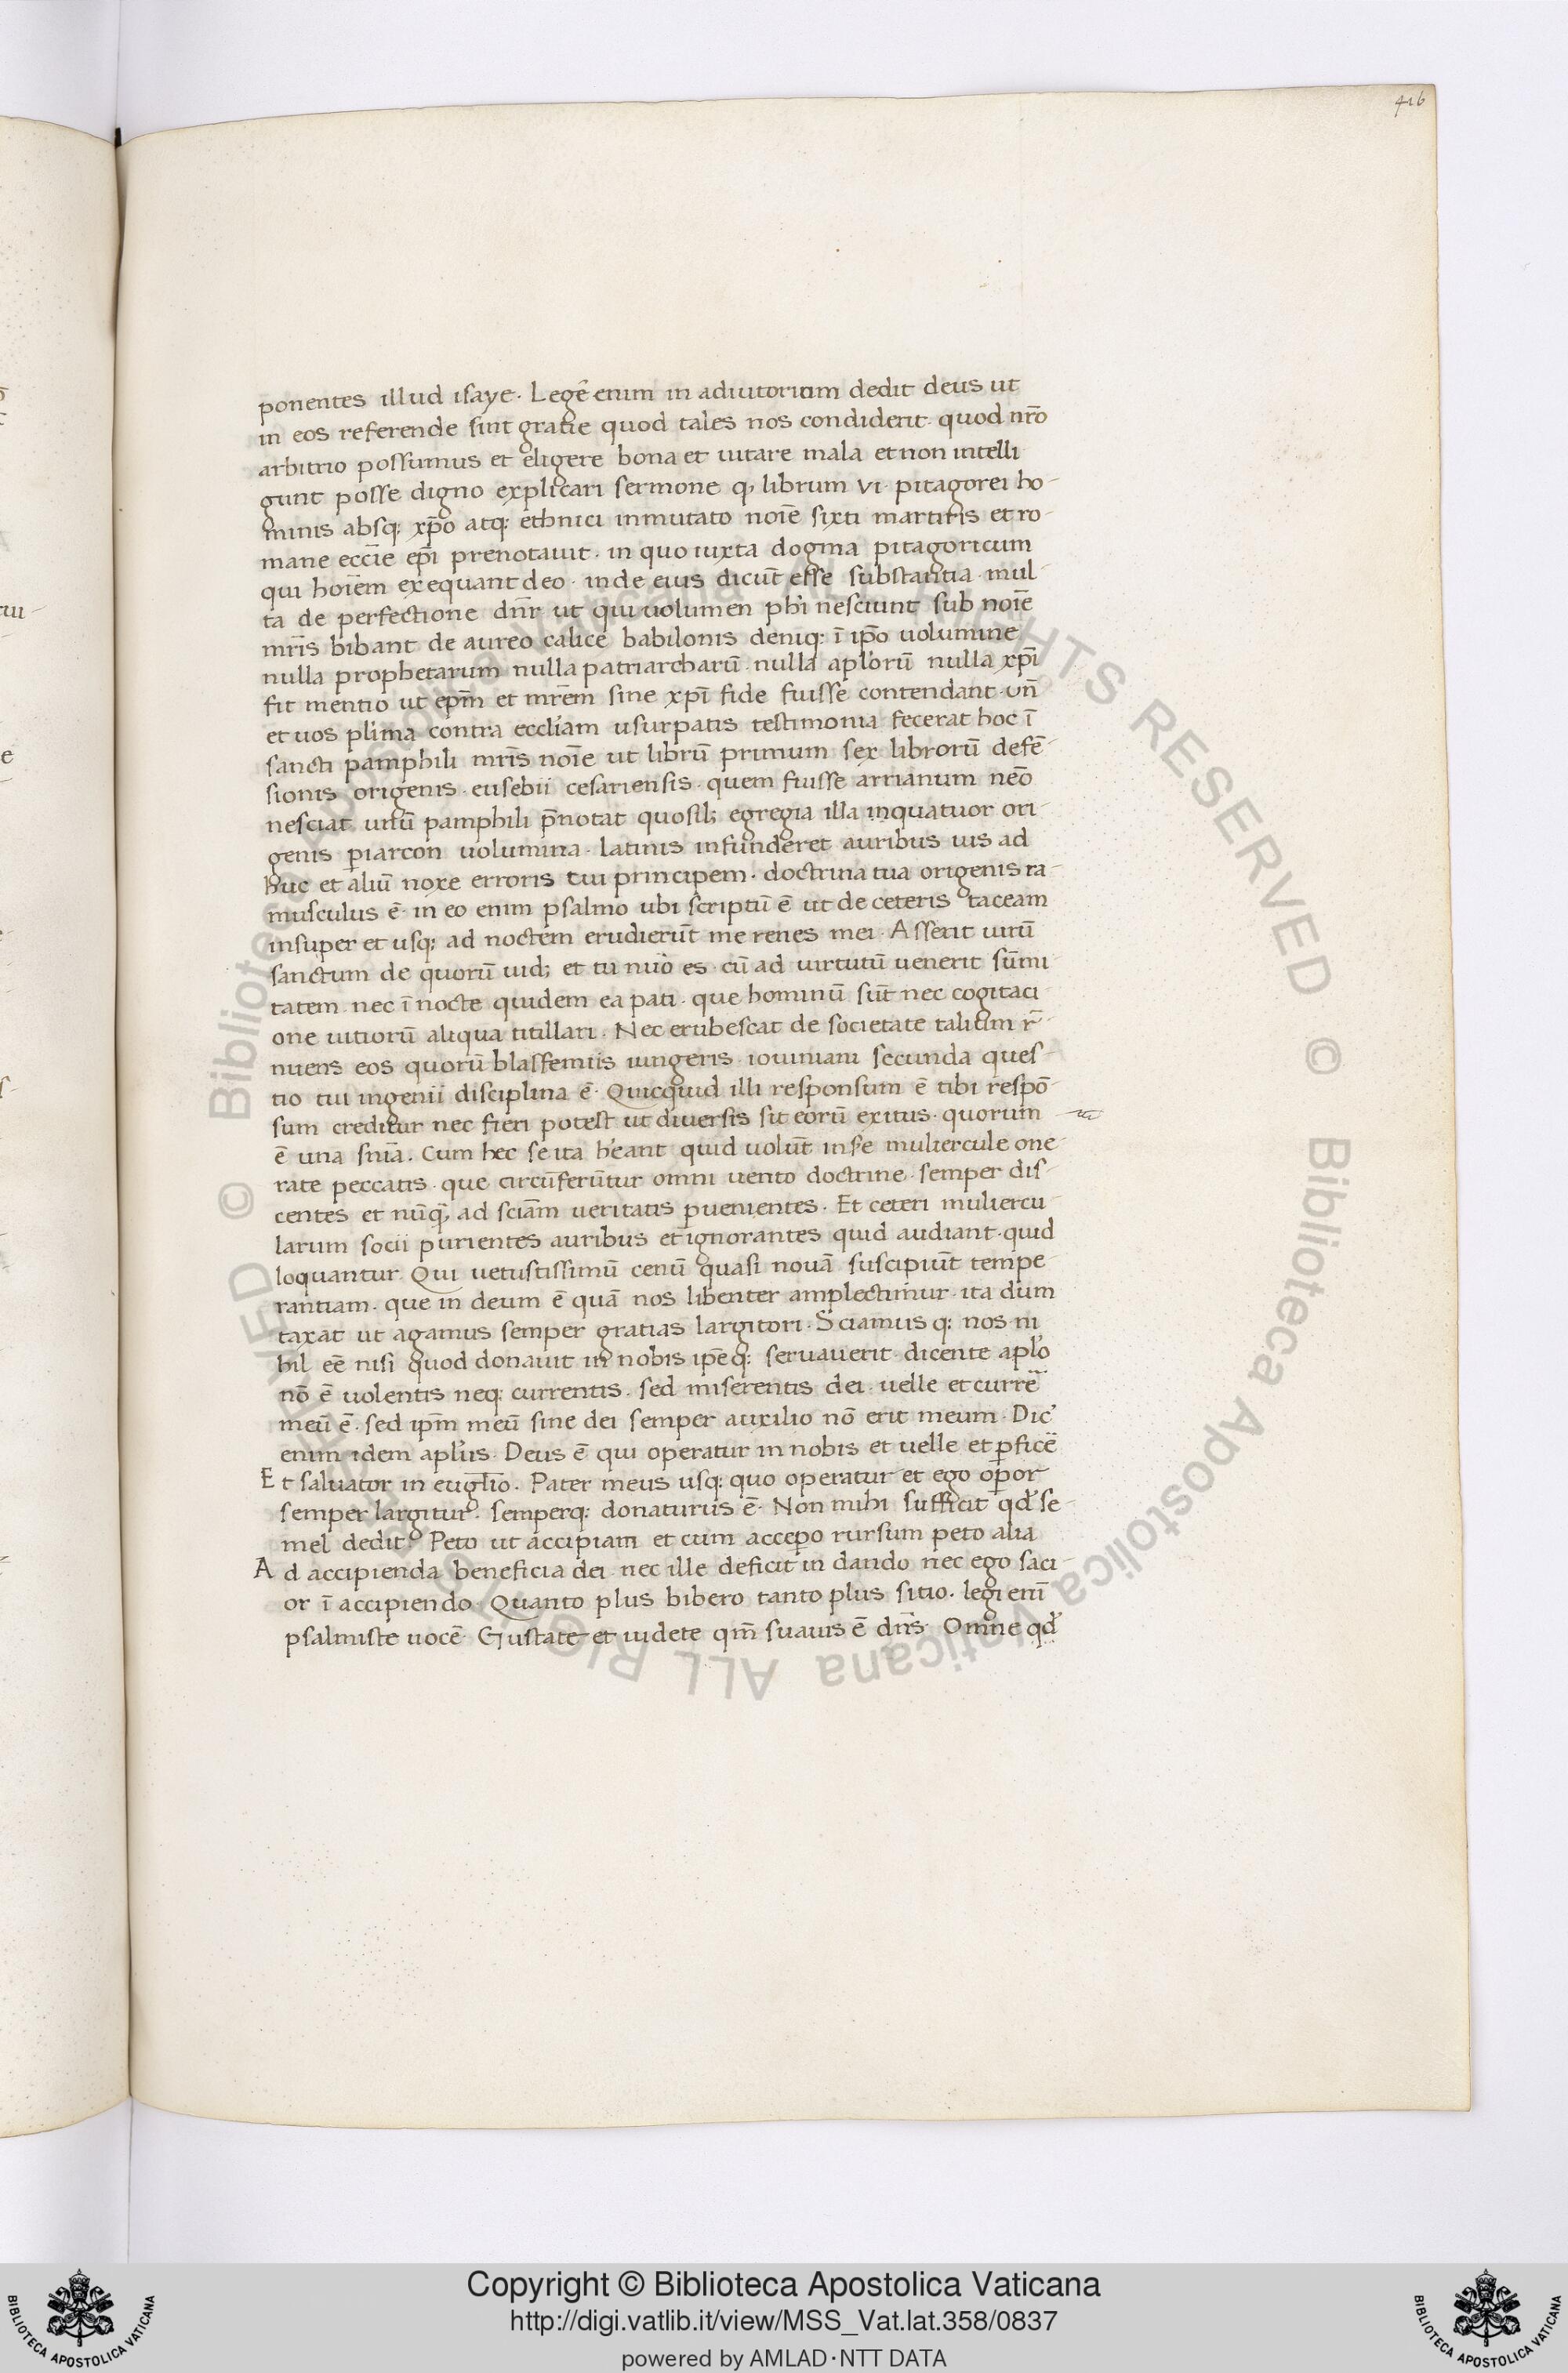 416
ponentes illud isaye. Legẽ enim in adiutorium dedit deus ut
in eos referende sint gratie quod tales nos condiderit. quod nr̃o
arbitrio possumus et eligere bona et uitare mala et non intelli
gunt posse digno explicari sermone q, librum vi. pitagorei ho-
minis absq: xp̃o atq: ethnici inmutato noĩe sixti martiris et ro-
mane ecc̃ie ep̃i prenotauit. in quo iuxta dogma pitagoricum
qui hoĩem exequant deo. inde eius dicũt esse substantia. mul-
ta de perfectione dñr ut qui uolumen phĩ nesciunt sub noĩe
mr̃is bibant de aureo calice babilonis deniq: ĩ ip̃o uolumine
nulla prophetarum nulla patriarcharũ. nulla apl'orũ nulla xp̃i
fit mentio ut ep̃m et mr̃em sine xp̃i fide fuisse contendant. Uñ
et uos pl'ima contra eccl'iam usurpatis testimonia fecerat hoc ĩ
sancti pamphili mr̃is noĩe ut librũ primum sex librorũ defẽ-
sionis origenis. eusebii cesariensis. quem fuisse arrianum neõ
nesciat uirũ pamphili p̃notat quo sil; egregia illa inquatuor ori-
genis p̱iarcon uolumina. latinis infunderet auribus uis ad
huc et aliũ noxe erroris tui principem. doctrina tua origenis ra-
musculus ẽ. in eo enim psalmo ubi scriptũ ẽ ut de ceteris taceam
insuper et usq: ad noctem erudierũt me renes mei. Asserit uirũ
sanctum de quorũ uid; et tu nũo es. cũ ad uirtutũ uenerit sũmi
tatem. nec ĩ nocte quidem ea pati. que hominũ sũt nec cogitaci
one uitiorũ aliqua titillari. Nec erubescat de societate talium r̃-
nuens eos quorũ blasfemiis iungeris. iouiniani secunda ques-
tio tui ingenii disciplina ẽ. Quicquid illi responsum ẽ tibi respõ-
sum creditur nec fieri potest ut diuersis sit eorũ exitus. quorum
ẽ una sñia. Cum hec se ita h'eant quid uolũt in se muliercule one-
rate peccatis. que circũferũtur omni uento doctrine. semper dis-
centes et nũq̃, ad sciãm ueritatis p̱uenientes. Et ceteri muliercu-
larum socii purientes auribus et ignorantes quid audiant. quid
loquantur. Qui uetustissimũ cenũ quasi nouã suscipiũt tempe
rantiam. que in deum ẽ quã nos libenter amplectimur. ita dum
taxat ut agamus semper gratias largitori. Sciamus q: nos ni
hil eẽ nisi quod donauit in nobis ip̃eq: seruauerit. dicente apl'o
nõ ẽ uolentis neq: currentis. sed miserentis dei. uelle et currẽ
meũ ẽ. sed ip̃m meũ sine dei semper auxilio nõ erit meum. Dic'
enim idem apl'us. Deus ẽ qui operatur in nobis et uelle et p̱ficẽ
Et saluator in eugl̃io. Pater meus usq: quo operatur et ego op̱or
semper largitur. semperq: donaturus ẽ. Non mihi sufficit qd' se-
mel dedit. Peto ut accipiam et cum accep̱o rursum peto alia
Ad accipienda beneficia dei. nec ille deficit in dando nec ego saci-
or ĩ accipiendo. Quanto plus bibero tanto plus sitio. legi enĩ
psalmiste uocẽ. Gustate et uidete qm̃ suauis ẽ dñs. Omne qd'
Copyright © Biblioteca Apostolica Vaticana
http://digi.vatlib.it/view/MSS_Vat.lat.358/0837
powered by AMLAD·NTT DATA
BIBLIOTECA APOSTOLICA VATICANA
BIBLIOTECA APOSTOLICA VATICANA
© Biblioteca Apostolica Vaticana ALL RIGHTS RESERVED © Biblioteca Apostolica Vaticana ALL RIGHTS RESERVED